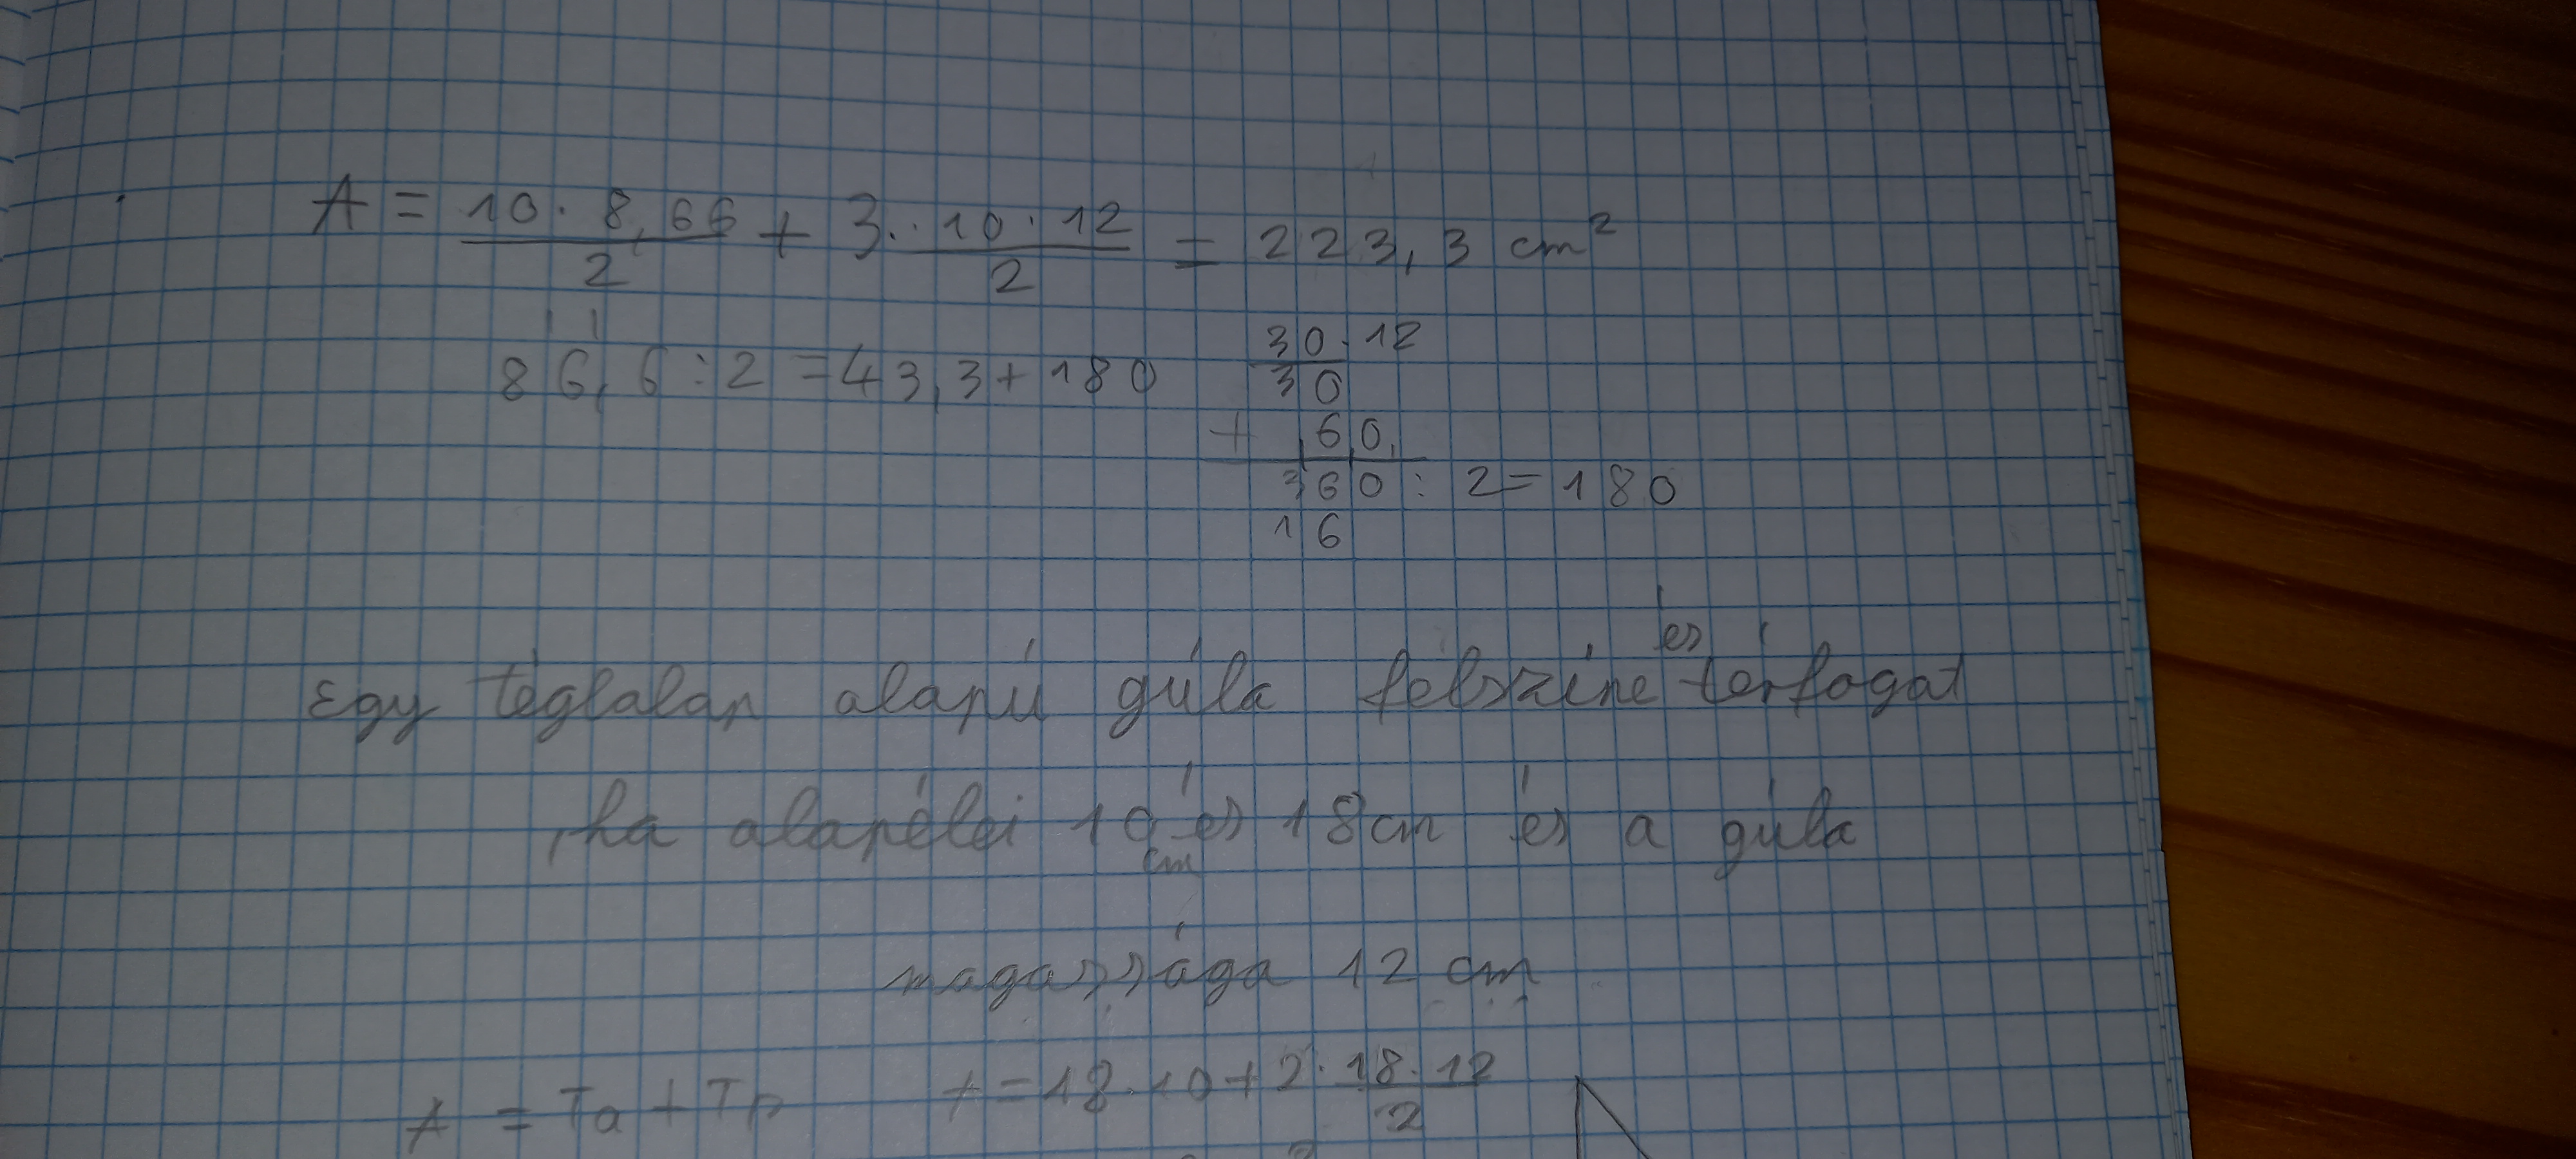 A = 10 · 8,66 / 2 + 3 · 10 · 12 / 2 = 223,3 cm²
86,6 : 2 = 43,3 + 180
30 · 12
30
+ 60
360 : 2 = 180
16
Egy téglalap alapú gúla felszíne és térfogat
, ha alapélei 10 cm és 18 cm és a gúla
magassága 12 cm
A = Ta + Tp
A = 18 · 10 + 2 · 18 · 12 / 2